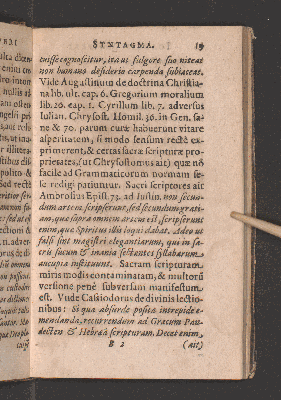 SYNTAGMA. 19
cuisse cognoscitur, ita ut fulgore suo niteat
non humano desiderio carpenda subiaceat.
Vide Augustinum de doctrina Christia-
na lib. ult. cap. 6. Gregorium moralium
lib. 20. cap. 1. Cyrillum lib. 7. adversus
Iulian. Chrysost. Homil. 30. in Gen. sa-
ne & 70. parum curæ habuerunt vitare
asperitatem, si modo sensum rectè ex-
primerent, & certas sacræ scripturæ pro-
prietates, (ut Chrysostomus ait) quæ nō
facile ad Grammaticorum normam se-
se redigi patiuntur. Sacri scriptores ait
Ambrosius Epist. 73. ad Iustin. non secun-
dum artem scripserunt, sed secundum grati-
am, quæ supra omnem artem est, scripserunt
enim, quæ Spiritus illis loqui dabat. Adeo ut
falsi sint magistri elegantiarum, qui in sa-
cris sucum & inania sectantes syllabarum
aucupia instituunt. Sacram scripturam
miris modis contaminatam, & multorū
versione penè subversam manifestum
est. Vnde Cassiodorus de divinis lectio-
nibus: Si qua absurdè posita intrepidè e-
mendanda, recurrendum ad Græcum Pan-
decten & Hebræā scripturam. Decet enim,
B 2 (ait)